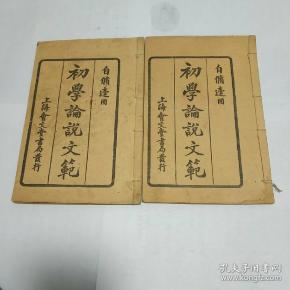 自脩適用
初學論說文範
上海會文堂書局發行
自脩適用
初學論說文範
上海會文堂書局發行
孔夫子旧书网